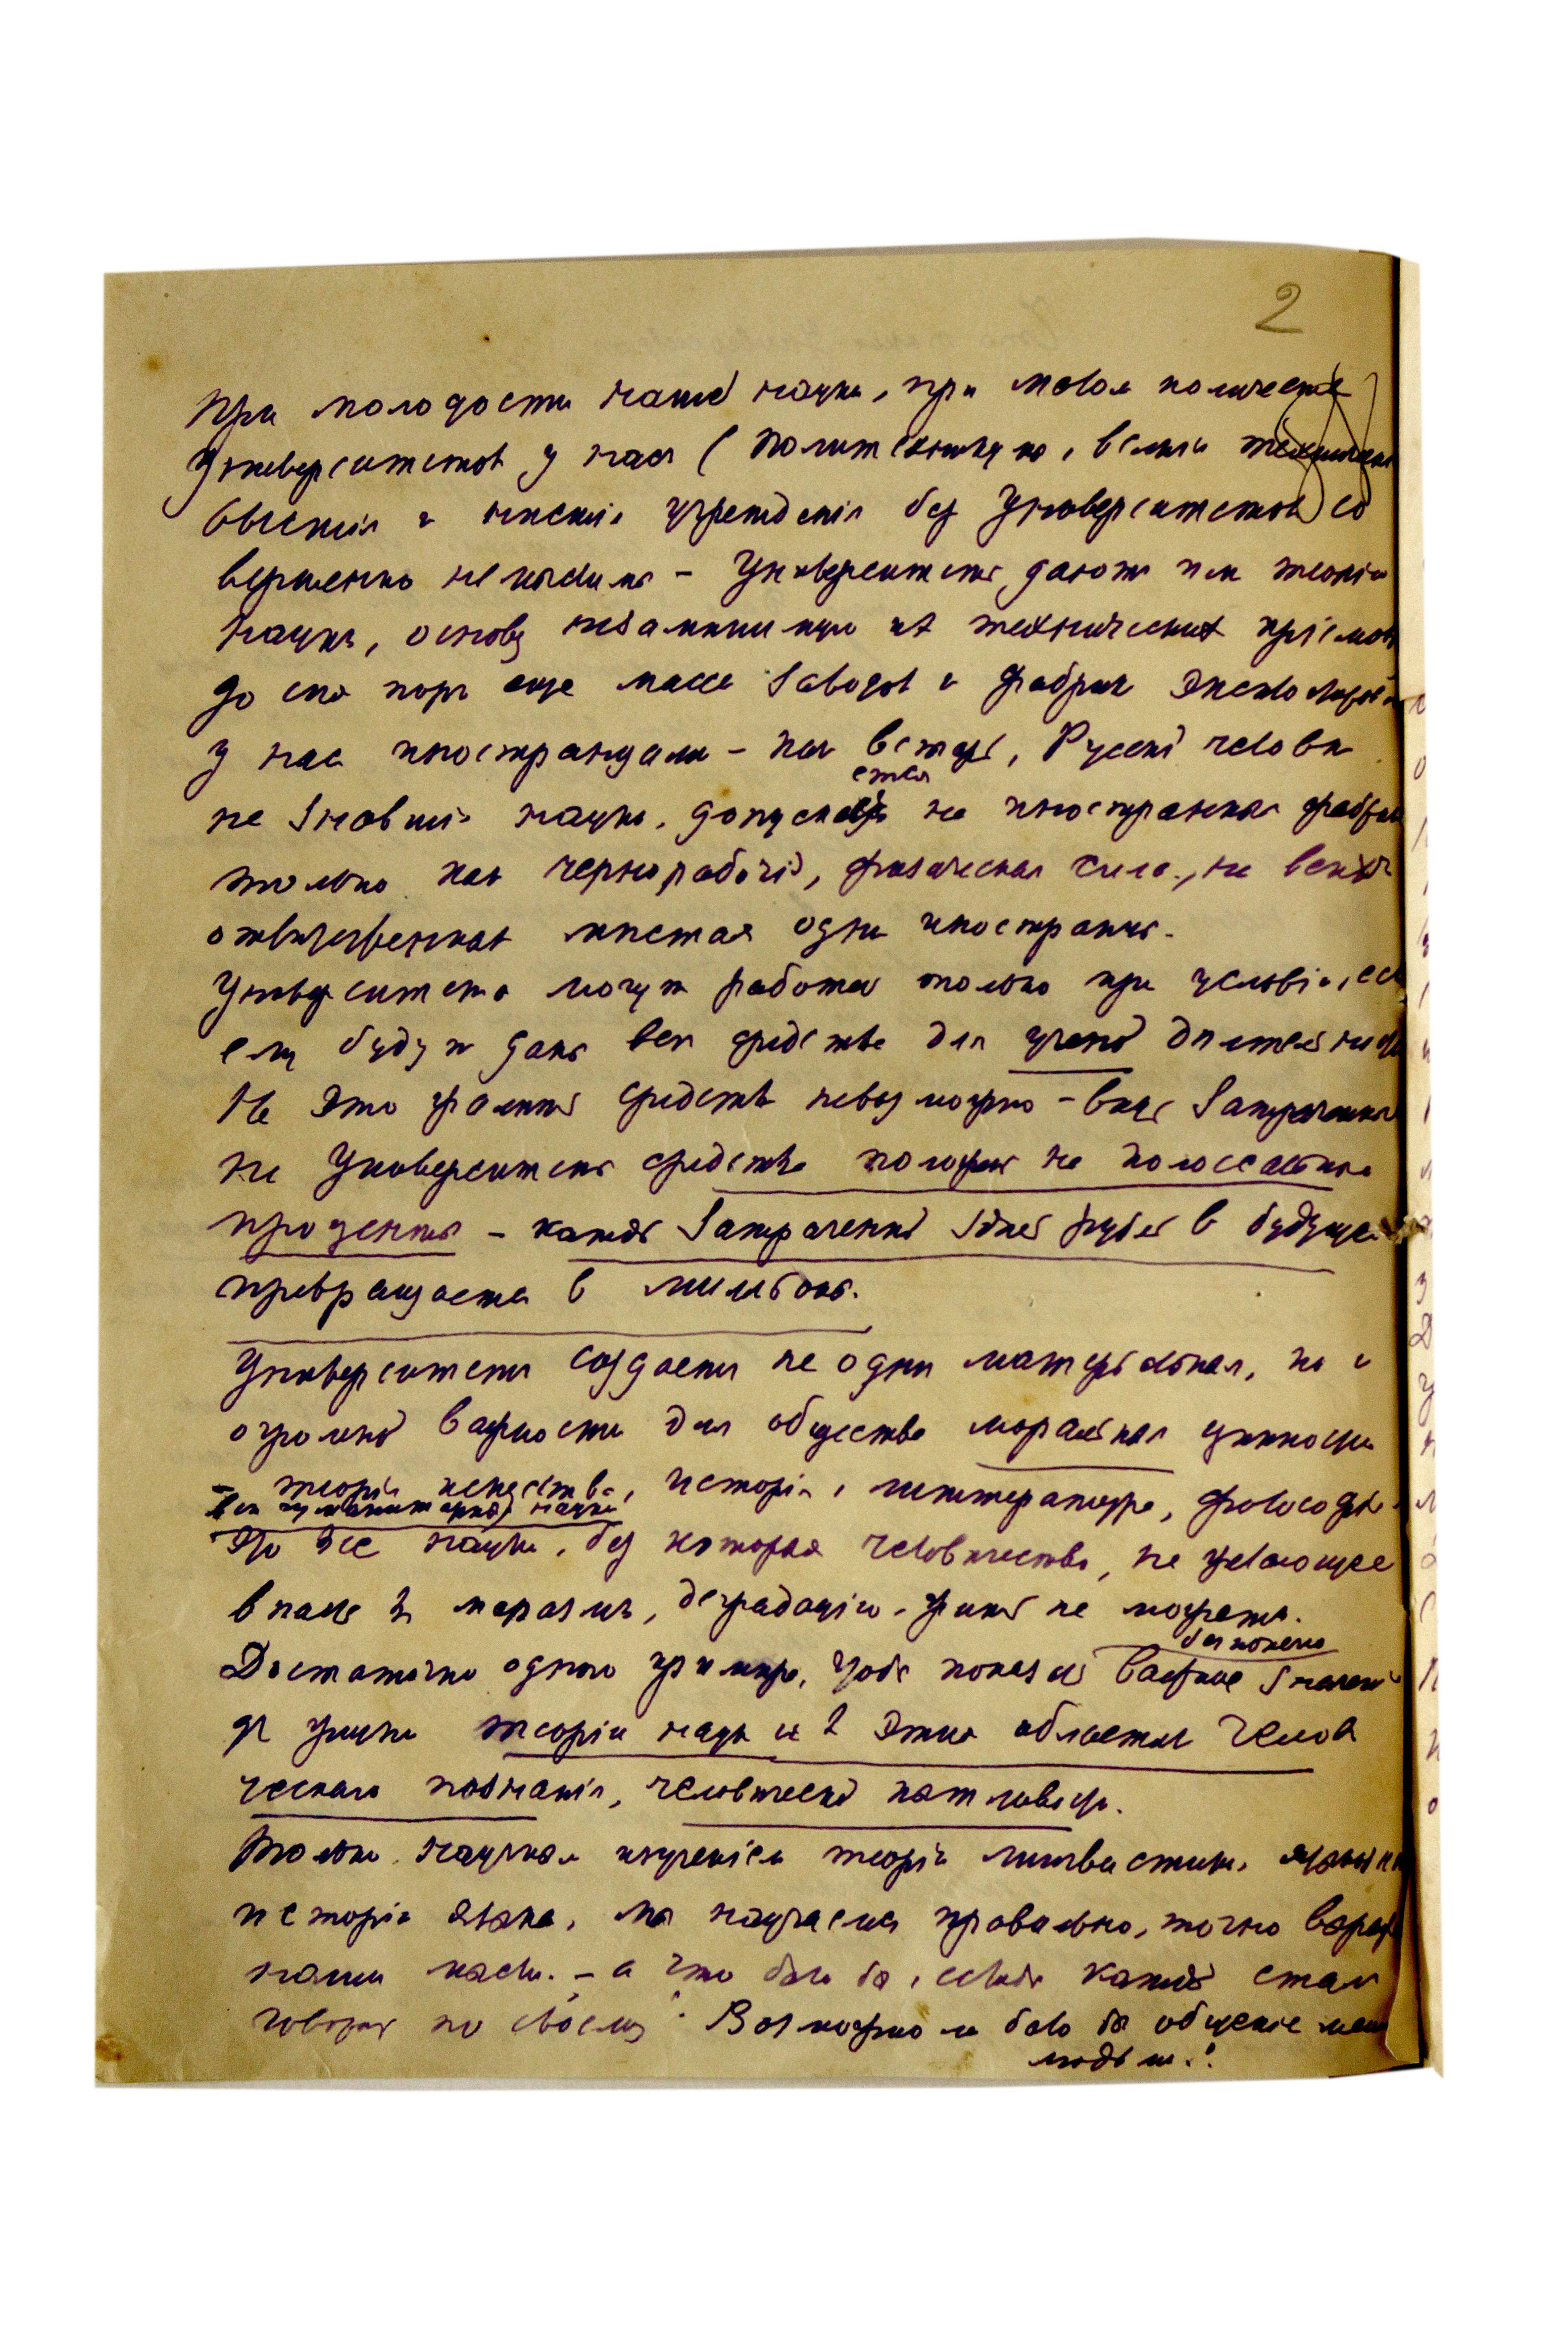 2
При молодости нашей науки, при малом количестве
Университетов у нас (Политехникумы, всякие технические
высшия и низшия учреждения без Университетов) со
вершенно немыслимы – Университеты дают им теорию
науки, основу их технических приемов
до сих пор еще масса заводов и фабрик
у нас иностранцами – Русский человек
не знавший науки, допускается на иностранныя фабрики
только как чернорабочий, физическая сила, на всех
ответственных местах одни иностранцы.
Университеты могут работать только при условии, если
ему будут даны все средства для ученой деятельности
На это жалеть средств невозможно – ведь затраченныя
на Университеты средства положены на колоссальные
проценты – каждый затраченный здесь рубль в будущем
превращается в мильоны.
Университеты создают не одни матерьяльныя, но и
огромной важности для общества моральныя ценности
– теория искусства, история, литтература, философия
все гуманитарныя науки
Это все науки, без которых человечество, не желающее
впасть в маразм, деградацию, жить не может.
Достаточно одного примера, чтобы показать важное значение
бы конечно
теории наук и в этих областях челове
ческаго познания, человеческой
Только научным изучением теории лингвистики, языка
истории языка, мы научаемся правильно, точно выражать
наши мысли – а что было бы, если бы каждый стал
говорить по своему? Возможно ли было бы общение между
людьми!